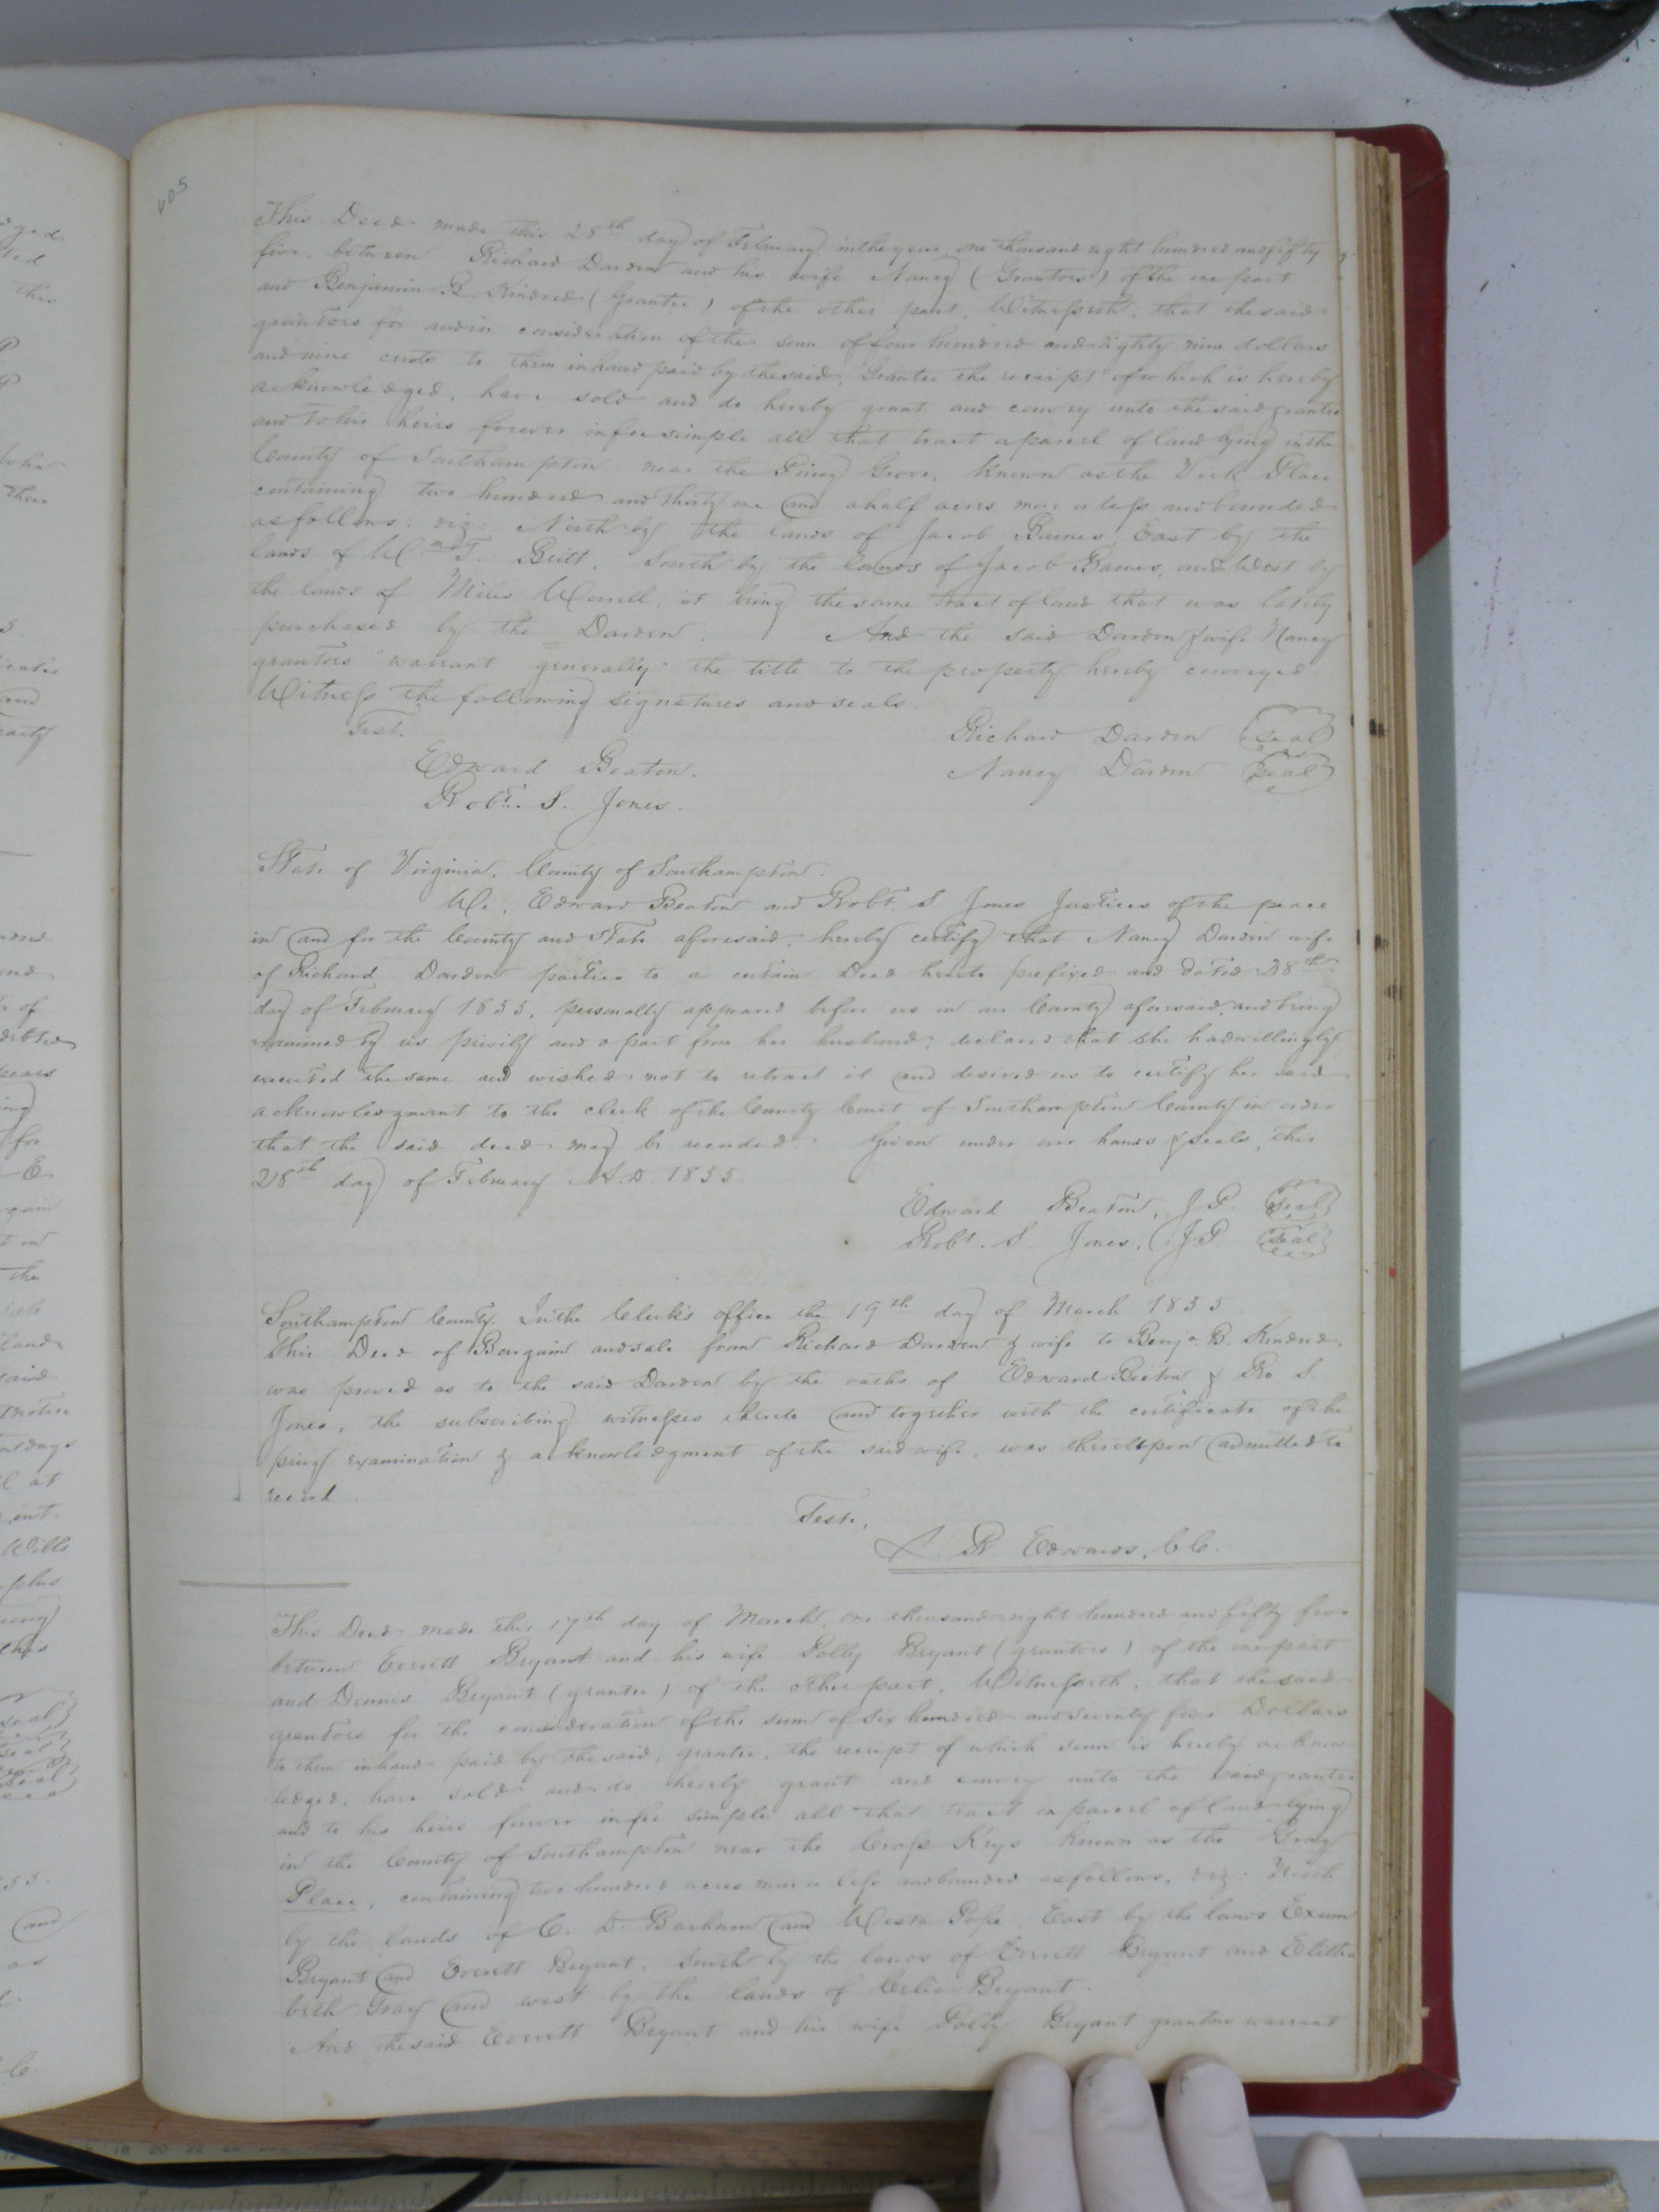 605
This Deed made this 28th day of February in the year one thousand eight hundred and fifty
five, between Richard Darden and his wife Nancy (Grantors) of the one part
and Benjamin B. Kindred (Grantee) of the other part, Witnesseth; that the said
grantors for and in consideration of the sum of four hundred and eighty nine dollars
and nine cents to them in hand paid by the said, Grantee the receipt of which is hereby
acknowledged, have sold and do hereby grant and convey unto the said grantee
and to his heirs forever in fee simple all that tract or parcel of land lying in the
County of Southampton near the Piney Grove, known as the Vick Place
containing two hundred and thirty one and a half acres more or less and bounded
as follows; viz: North by the lands of Jacob Barnes, East by the
lands of Wm. T. Britt, South by the lands of Jacob Barnes, and West by
the lands of Miles Worrell, it being the same tract of land that was lately
purchased by the Darden. And the said Darden & wife Nancy
grantors "warrant generally" the title to the property hereby conveyed
Witness the following signatures and seals.
Test. Richard Darden seal
Edward Beaton. Nancy Darden seal
Robt. S. Jones.
State of Virginia, County of Southampton.
We, Edward Beaton and Robt. S Jones Justices of the peace
in and for the County and State aforesaid, hereby certify that Nancy Darden wife
of Richard Darden parties to a certain Deed hereto prefixed and dated 28th
day of February 1855, personally appeared before us in our County aforesaid, and being
examined by us privily and apart from her husband; declared that she had willingly
executed the same and wished not to retract it and desired us to certify her said
acknowledgment to the clerk of the County Court of Southampton County in order
that the said deed may be recorded. Given under our hands & seals, this
28th day of February A.D. 1855
Edward Beaton, J.P. seal
Robt. S. Jones, J.P. seal
Southampton County. In the Clerk's office the 19th day of March 1855
This Deed of Bargain and sale from Richard Darden & wife to Benja. B. Kindred,
was proved as to the said Darden by the oaths of Edward Beaton & Ro. S.
Jones, the subscribing witnesses thereto and together with the certificate of the
privy examination & acknowledgment of the said wife, was thereupon admitted to
record.
Teste,
L. R. Edwards, C.C.
This Deed made this 17th day of March, one thousand eight hundred and fifty five
between Everett Bryant and his wife Polly Bryant (grantors) of the one part
and Dennis Bryant (grantee) of the other part, Witnesseth, that the said
grantors for the consideration of the sum of six hundred and seventy five Dollars
to them in hand paid by the said, grantee, the receipt of which sum is hereby acknow
ledged, have sold and do hereby grant and convey unto the said grantee
and to his heirs forever in fee simple all that tract or parcel of land lying
in the County of Southampton near the Cross Keys known as the Gray
Place, containing two hundred acres more or less and bounded as follows, viz: North
by the lands of C. D. Barham and Pope, East by the lands Exum
Bryant and Everett Bryant, South by the lands of Everett Bryant and Eliza
beth Gray and west by the lands of Celia Bryant.
And the said Everett Bryant and his wife Polly Bryant grantors warrant